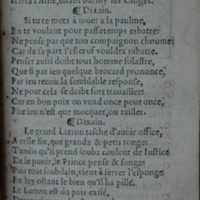 ¶ Dixain.
Si tu te mets à iouer à la paulme,
En te voulant pour passetemps esbatre
Ne pense pas que ton compaignon chomme
Car de sa part l'esteuf vouldra rabatre.
Penser aussi doibt tout homme folastre,
Que si par ieu quelque brocard prononce,
Par ieu recoit la semblable response,
Ne pour cela se doibt fort travailler
Car en bon poix on vend once pour once,
Pire ieu n'est que mocquer, ou railler.
¶ Dixain.
Le grand Larron tasche d'avoir office,
A celle fin, que grands & petis ronge:
Tandis qu'il prend soubz couleur de Iustice
De le punir, le Prince pense & songe:
Puis tout soubdain, vient à serrer l'esponge
En luy ostant le bien qu'il ha pillé.
Le Larron est du pais exilé,